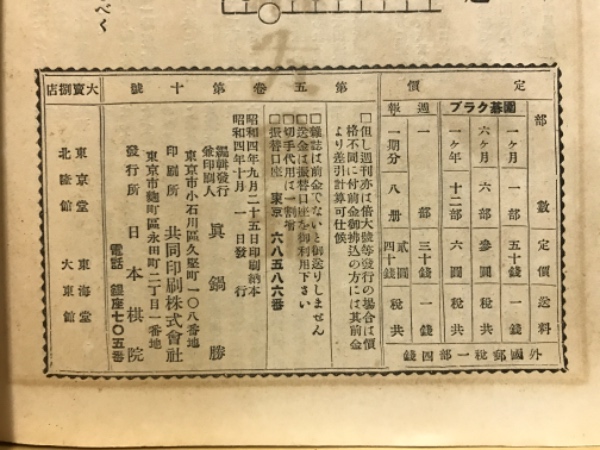 べく
定價
部數 定價 送料
圍碁クラブ
一ヶ月 一部 五十錢 一錢
六ヶ月 六部 參圓 税共
一ヶ年 十二部 六圓 税共
週報
一部 三十錢 一錢
一期分 八册 貳圓四十錢 税共
外國郵税一部四錢
第五卷第十號
□但し週刊亦は倍大號等發行の場合は價
格不同に付前金御拂込の方には其前金
より差引計算可仕候
□雜誌は前金でないと御送りしません
□送金は振替口座を御利用下さい
□切手代用は一割增
□振替口座 東京 六八五八六番
昭和四年九月二十五日印刷納本
昭和四年十月一日發行
編輯發行
兼印刷人 眞鍋勝
東京市小石川區久堅町一〇八番地
印刷所 共同印刷株式會社
東京市麴町區永田町二丁目一番地
發行所 日本棋院
電話 銀座七〇五番
大賣捌店
東京堂 東海堂
北隆館 大東館